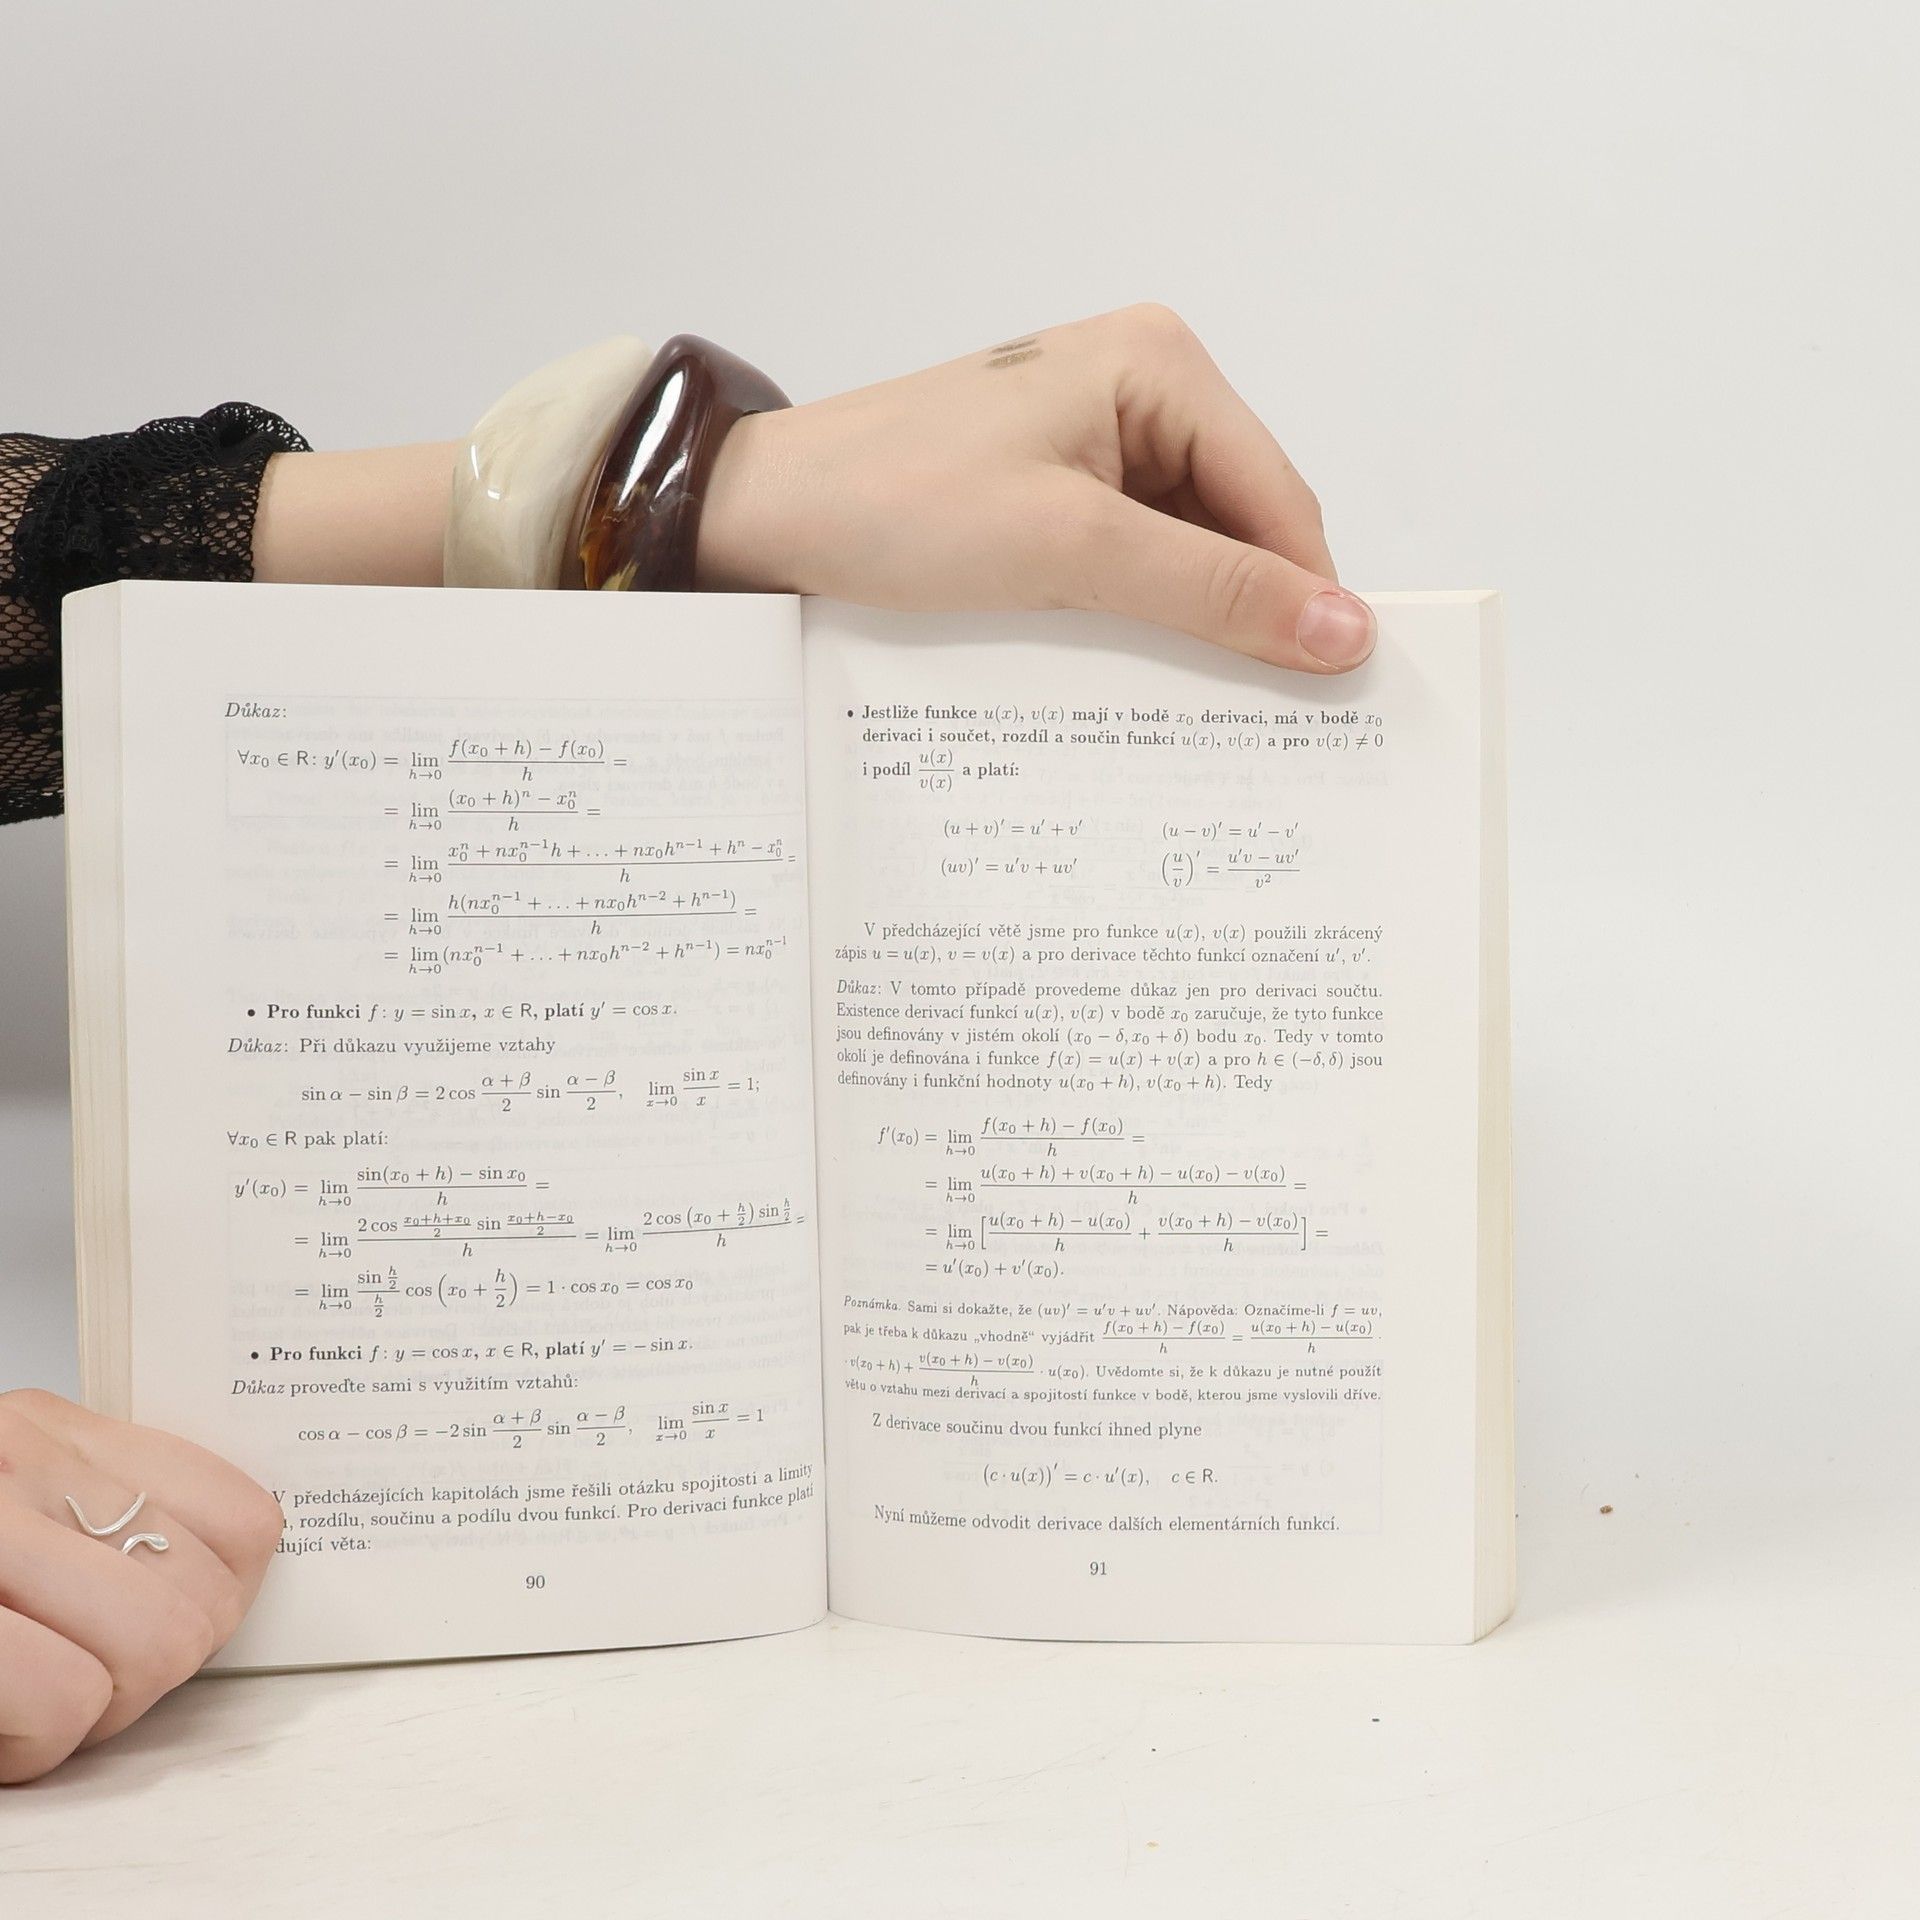 Důkaz:
∀x₀ ∈ R: y′(x₀) = lim_{h→0} (f(x₀ + h) − f(x₀))/h =
= lim_{h→0} ((x₀ + h)ⁿ − x₀ⁿ)/h =
= lim_{h→0} (x₀ⁿ + nx₀ⁿ⁻¹h + … + nx₀hⁿ⁻¹ + hⁿ − x₀ⁿ)/h =
= lim_{h→0} h(nx₀ⁿ⁻¹ + … + nx₀hⁿ⁻² + hⁿ⁻¹)/h =
= lim_{h→0} (nx₀ⁿ⁻¹ + … + nx₀hⁿ⁻² + hⁿ⁻¹) = nx₀ⁿ⁻¹
• Pro funkci f: y = sin x, x ∈ R, platí y′ = cos x.
Důkaz: Při důkazu využijeme vztahy
sin α − sin β = 2 cos (α + β)/2 sin (α − β)/2, lim_{x→0} (sin x)/x = 1;
∀x₀ ∈ R pak platí:
y′(x₀) = lim_{h→0} (sin(x₀ + h) − sin x₀)/h =
= lim_{h→0} (2 cos (x₀+h+x₀)/2 sin (x₀+h−x₀)/2)/h = lim_{h→0} (2 cos (x₀ + h/2) sin h/2)/h =
= lim_{h→0} (sin h/2)/(h/2) cos (x₀ + h/2) = 1 · cos x₀ = cos x₀
• Pro funkci f: y = cos x, x ∈ R, platí y′ = − sin x.
Důkaz proveďte sami s využitím vztahů:
cos α − cos β = −2 sin (α + β)/2 sin (α − β)/2, lim_{x→0} (sin x)/x = 1
V předcházejících kapitolách jsme řešili otázku spojitosti a limity
, rozdílu, součinu a podílu dvou funkcí. Pro derivaci funkce platí
dující věta:
90
• Jestliže funkce u(x), v(x) mají v bodě x₀ derivaci, má v bodě x₀
derivaci i součet, rozdíl a součin funkcí u(x), v(x) a pro v(x) ≠ 0
i podíl u(x)/v(x) a platí:
(u + v)′ = u′ + v′ (u − v)′ = u′ − v′
(uv)′ = u′v + uv′ (u/v)′ = (u′v − uv′)/v²
V předcházející větě jsme pro funkce u(x), v(x) použili zkrácený
zápis u = u(x), v = v(x) a pro derivace těchto funkcí označení u′, v′.
Důkaz: V tomto případě provedeme důkaz jen pro derivaci součtu.
Existence derivací funkcí u(x), v(x) v bodě x₀ zaručuje, že tyto funkce
jsou definovány v jistém okolí (x₀ − δ, x₀ + δ) bodu x₀. Tedy v tomto
okolí je definována i funkce f(x) = u(x) + v(x) a pro h ∈ (−δ, δ) jsou
definovány i funkční hodnoty u(x₀ + h), v(x₀ + h). Tedy
f′(x₀) = lim_{h→0} (f(x₀ + h) − f(x₀))/h =
= lim_{h→0} (u(x₀ + h) + v(x₀ + h) − u(x₀) − v(x₀))/h =
= lim_{h→0} [(u(x₀ + h) − u(x₀))/h + (v(x₀ + h) − v(x₀))/h] =
= u′(x₀) + v′(x₀).
Poznámka. Sami si dokažte, že (uv)′ = u′v + uv′. Nápověda: Označíme-li f = uv,
pak je třeba k důkazu „vhodně“ vyjádřit (f(x₀ + h) − f(x₀))/h = (u(x₀ + h) − u(x₀))/h ·
· v(x₀ + h) + (v(x₀ + h) − v(x₀))/h · u(x₀). Uvědomte si, že k důkazu je nutné použít
větu o vztahu mezi derivací a spojitostí funkce v bodě, kterou jsme vyslovili dříve.
Z derivace součinu dvou funkcí ihned plyne
(c · u(x))′ = c · u′(x), c ∈ R.
Nyní můžeme odvodit derivace dalších elementárních funkcí.
91